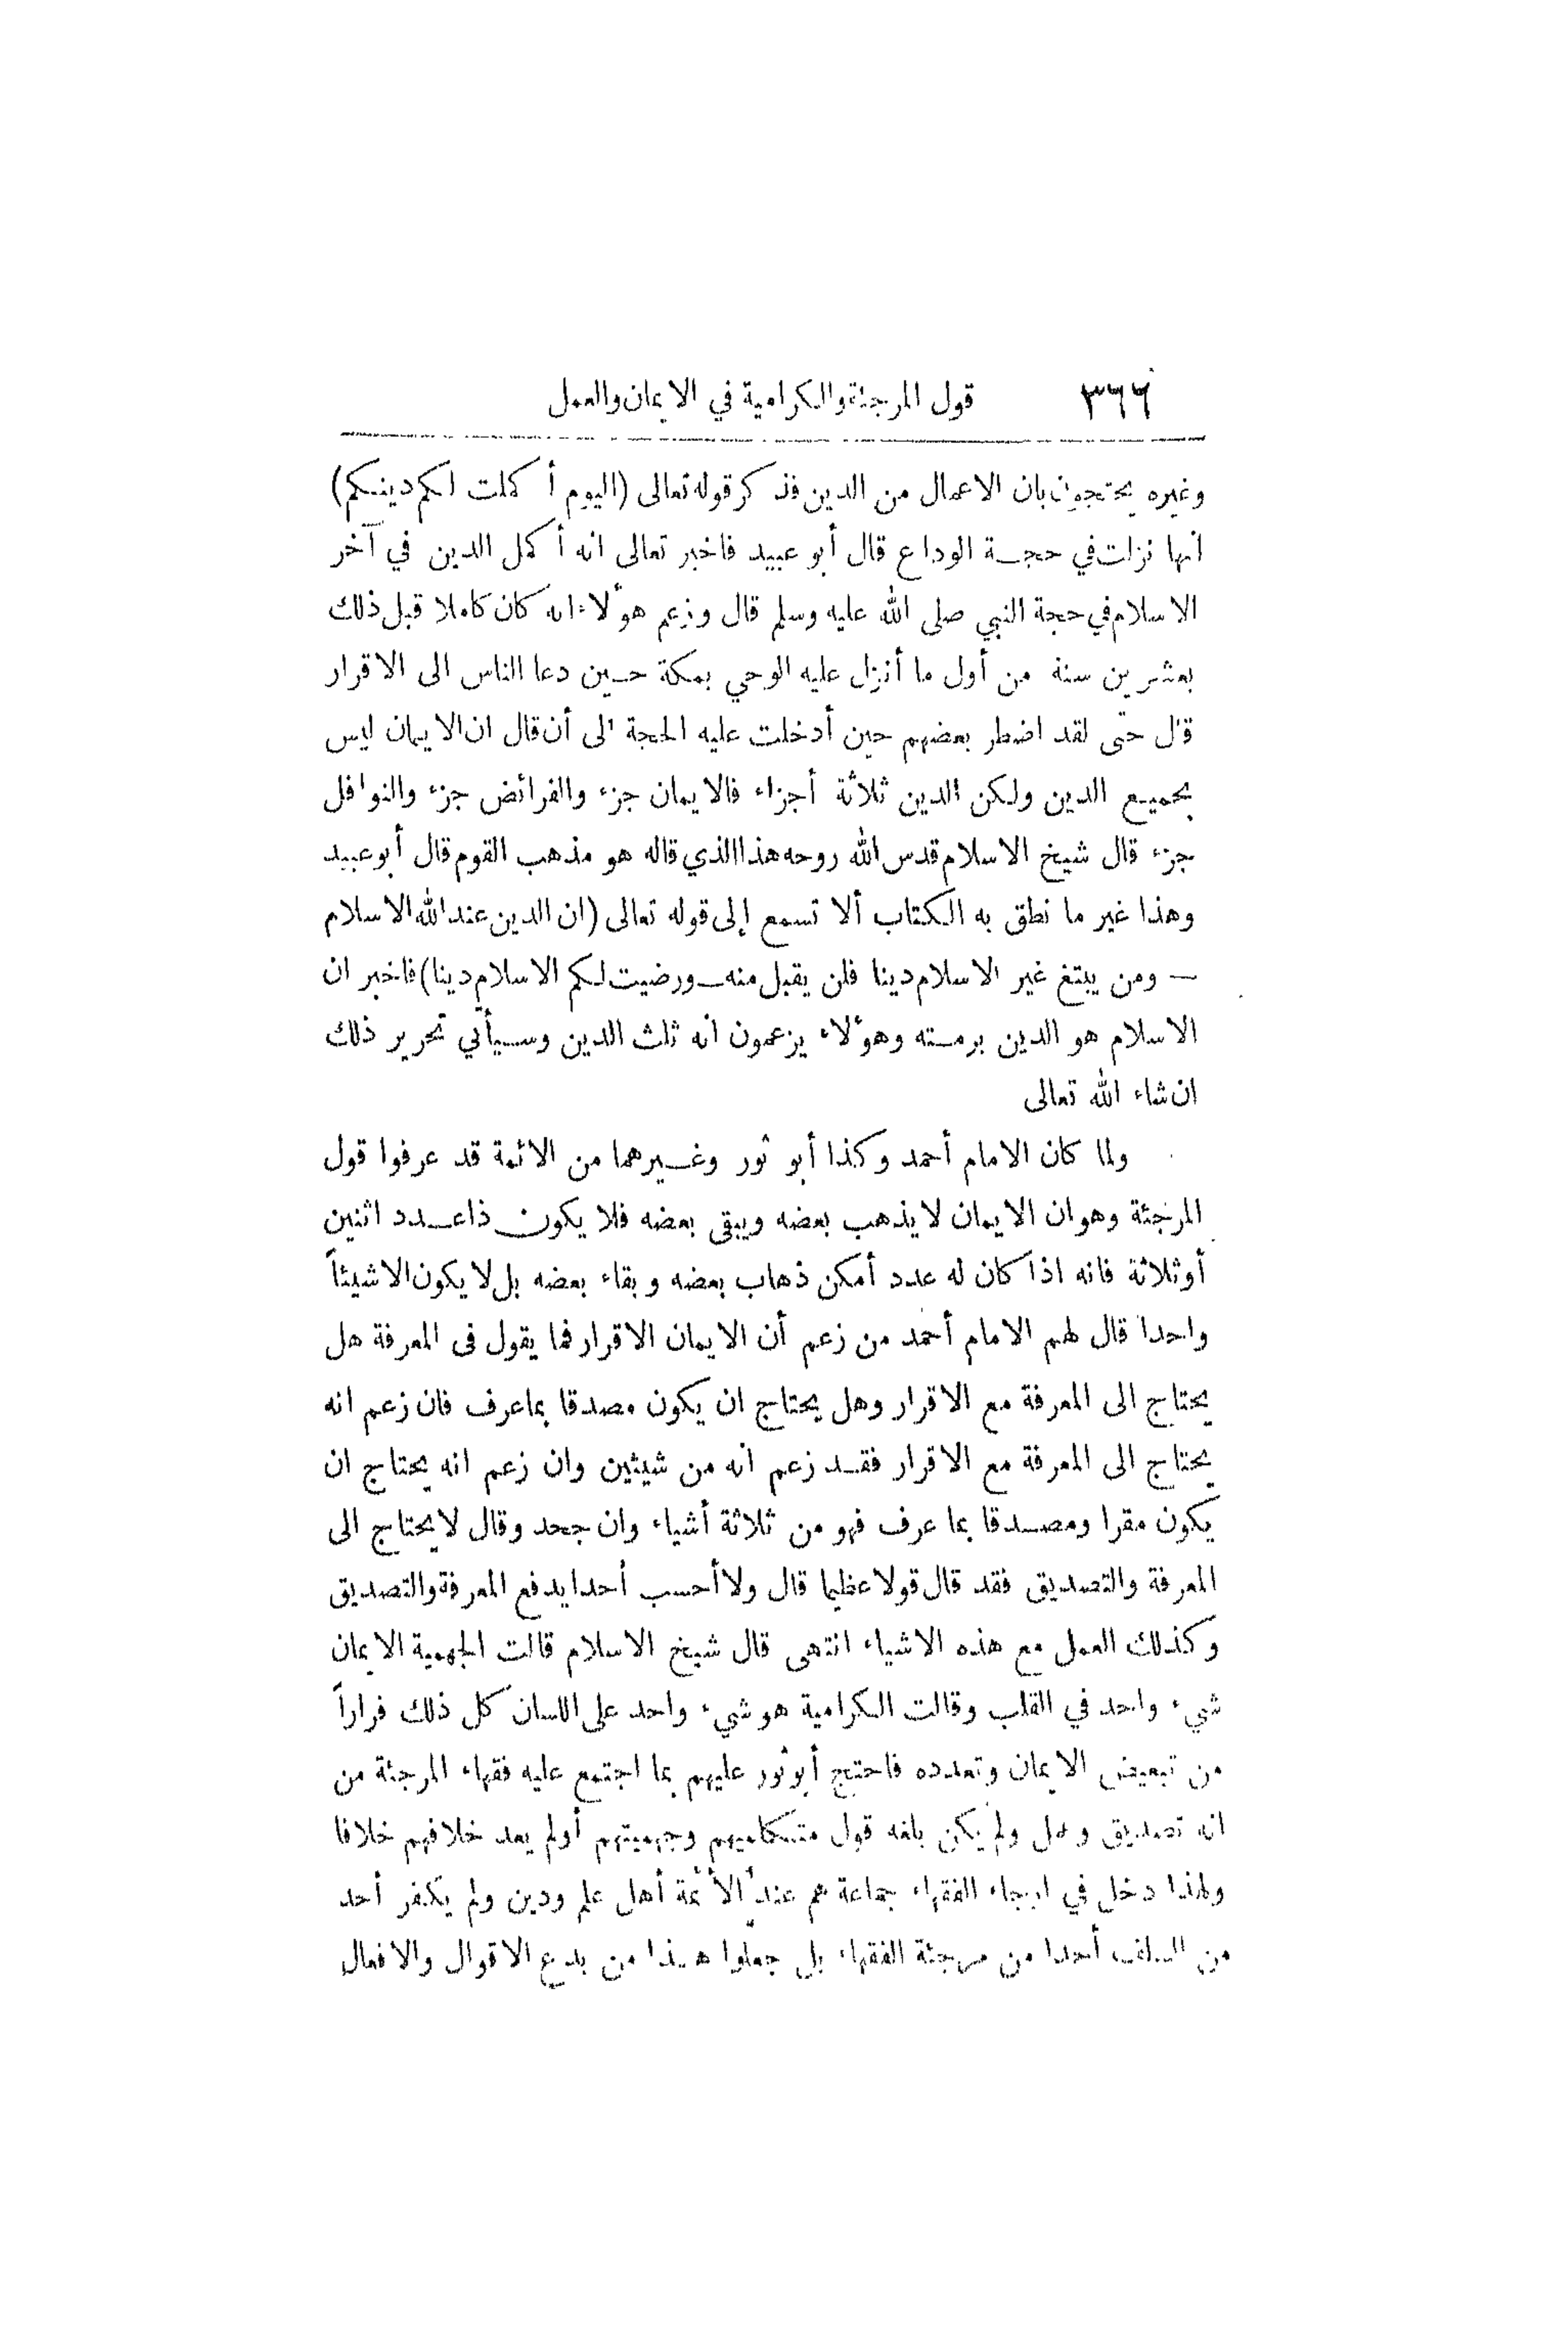 ٣٦٦ قول المرجئة والكرامية في الايمان والعمل
وغيره يحتجون بان الاعمال من الدين فذكر قوله تعالى (اليوم أكملت لكم دينكم)
انها نزلت في حجة الوداع قال أبو عبيد فاخبر تعالى انه أكمل الدين في آخر
الاسلام في حجة النبي صلى الله عليه وسلم قال وزعم هؤلاء انه كان كاملا قبل ذلك
بعشرين سنة من أول ما أنزل عليه الوحي بمكة حين دعا الناس الى الاقرار
قال حتى لقد اضطر بعضهم حين أدخلت عليه الحجة الى أن قال ان الايمان ليس
بجميع الدين ولكن الدين ثلاثة أجزاء فالايمان جزء والفرائض جزء والنوافل
جزء قال شيخ الاسلام قدس الله روحه هذا الذي قاله هو مذهب القوم قال أبو عبيد
وهذا غير ما نطق به الكتاب ألا تسمع إلى قوله تعالى (ان الدين عند الله الاسلام
— ومن يبتغ غير الاسلام دينا فلن يقبل منه — ورضيت لكم الاسلام دينا) فاخبر ان
الاسلام هو الدين برمته وهؤلاء يزعمون انه ثلث الدين وسيأتي تحرير ذلك
ان شاء الله تعالى
ولما كان الامام أحمد وكذا أبو ثور وغيرهما من الائمة قد عرفوا قول
المرجئة وهو ان الايمان لا يذهب بعضه ويبقى بعضه فلا يكون ذا عدد اثنين
أو ثلاثة فانه اذا كان له عدد أمكن ذهاب بعضه وبقاء بعضه بل لا يكون الا شيئاً
واحدا قال لهم الامام أحمد من زعم أن الايمان الاقرار فما يقول فى المعرفة هل
يحتاج الى المعرفة مع الاقرار وهل يحتاج ان يكون مصدقا بما عرف فان زعم انه
يحتاج الى المعرفة مع الاقرار فقد زعم انه من شيئين وان زعم انه يحتاج ان
يكون مقرا ومصدقا بما عرف فهو من ثلاثة أشياء وان جحد وقال لا يحتاج الى
المعرفة والتصديق فقد قال قولا عظيما قال ولا أحسب أحدا يدفع المعرفة والتصديق
وكذلك العمل مع هذه الاشياء انتهى قال شيخ الاسلام قالت الجهمية الايمان
شيء واحد في القلب وقالت الكرامية هو شيء واحد على اللسان كل ذلك فراراً
من تبعيض الايمان وتعدده فاحتج أبو ثور عليهم بما اجتمع عليه فقهاء المرجئة من
انه تصديق وعمل ولم يكن بلغه قول متكلميهم وجهميتهم أو لم يعد خلافهم خلافا
ولهذا دخل في ارجاء الفقهاء جماعة هم عند الأئمة أهل علم ودين ولم يكفر أحد
من السلف أحدا من مرجئة الفقهاء بل جعلوا هذا من بدع الاقوال والافعال